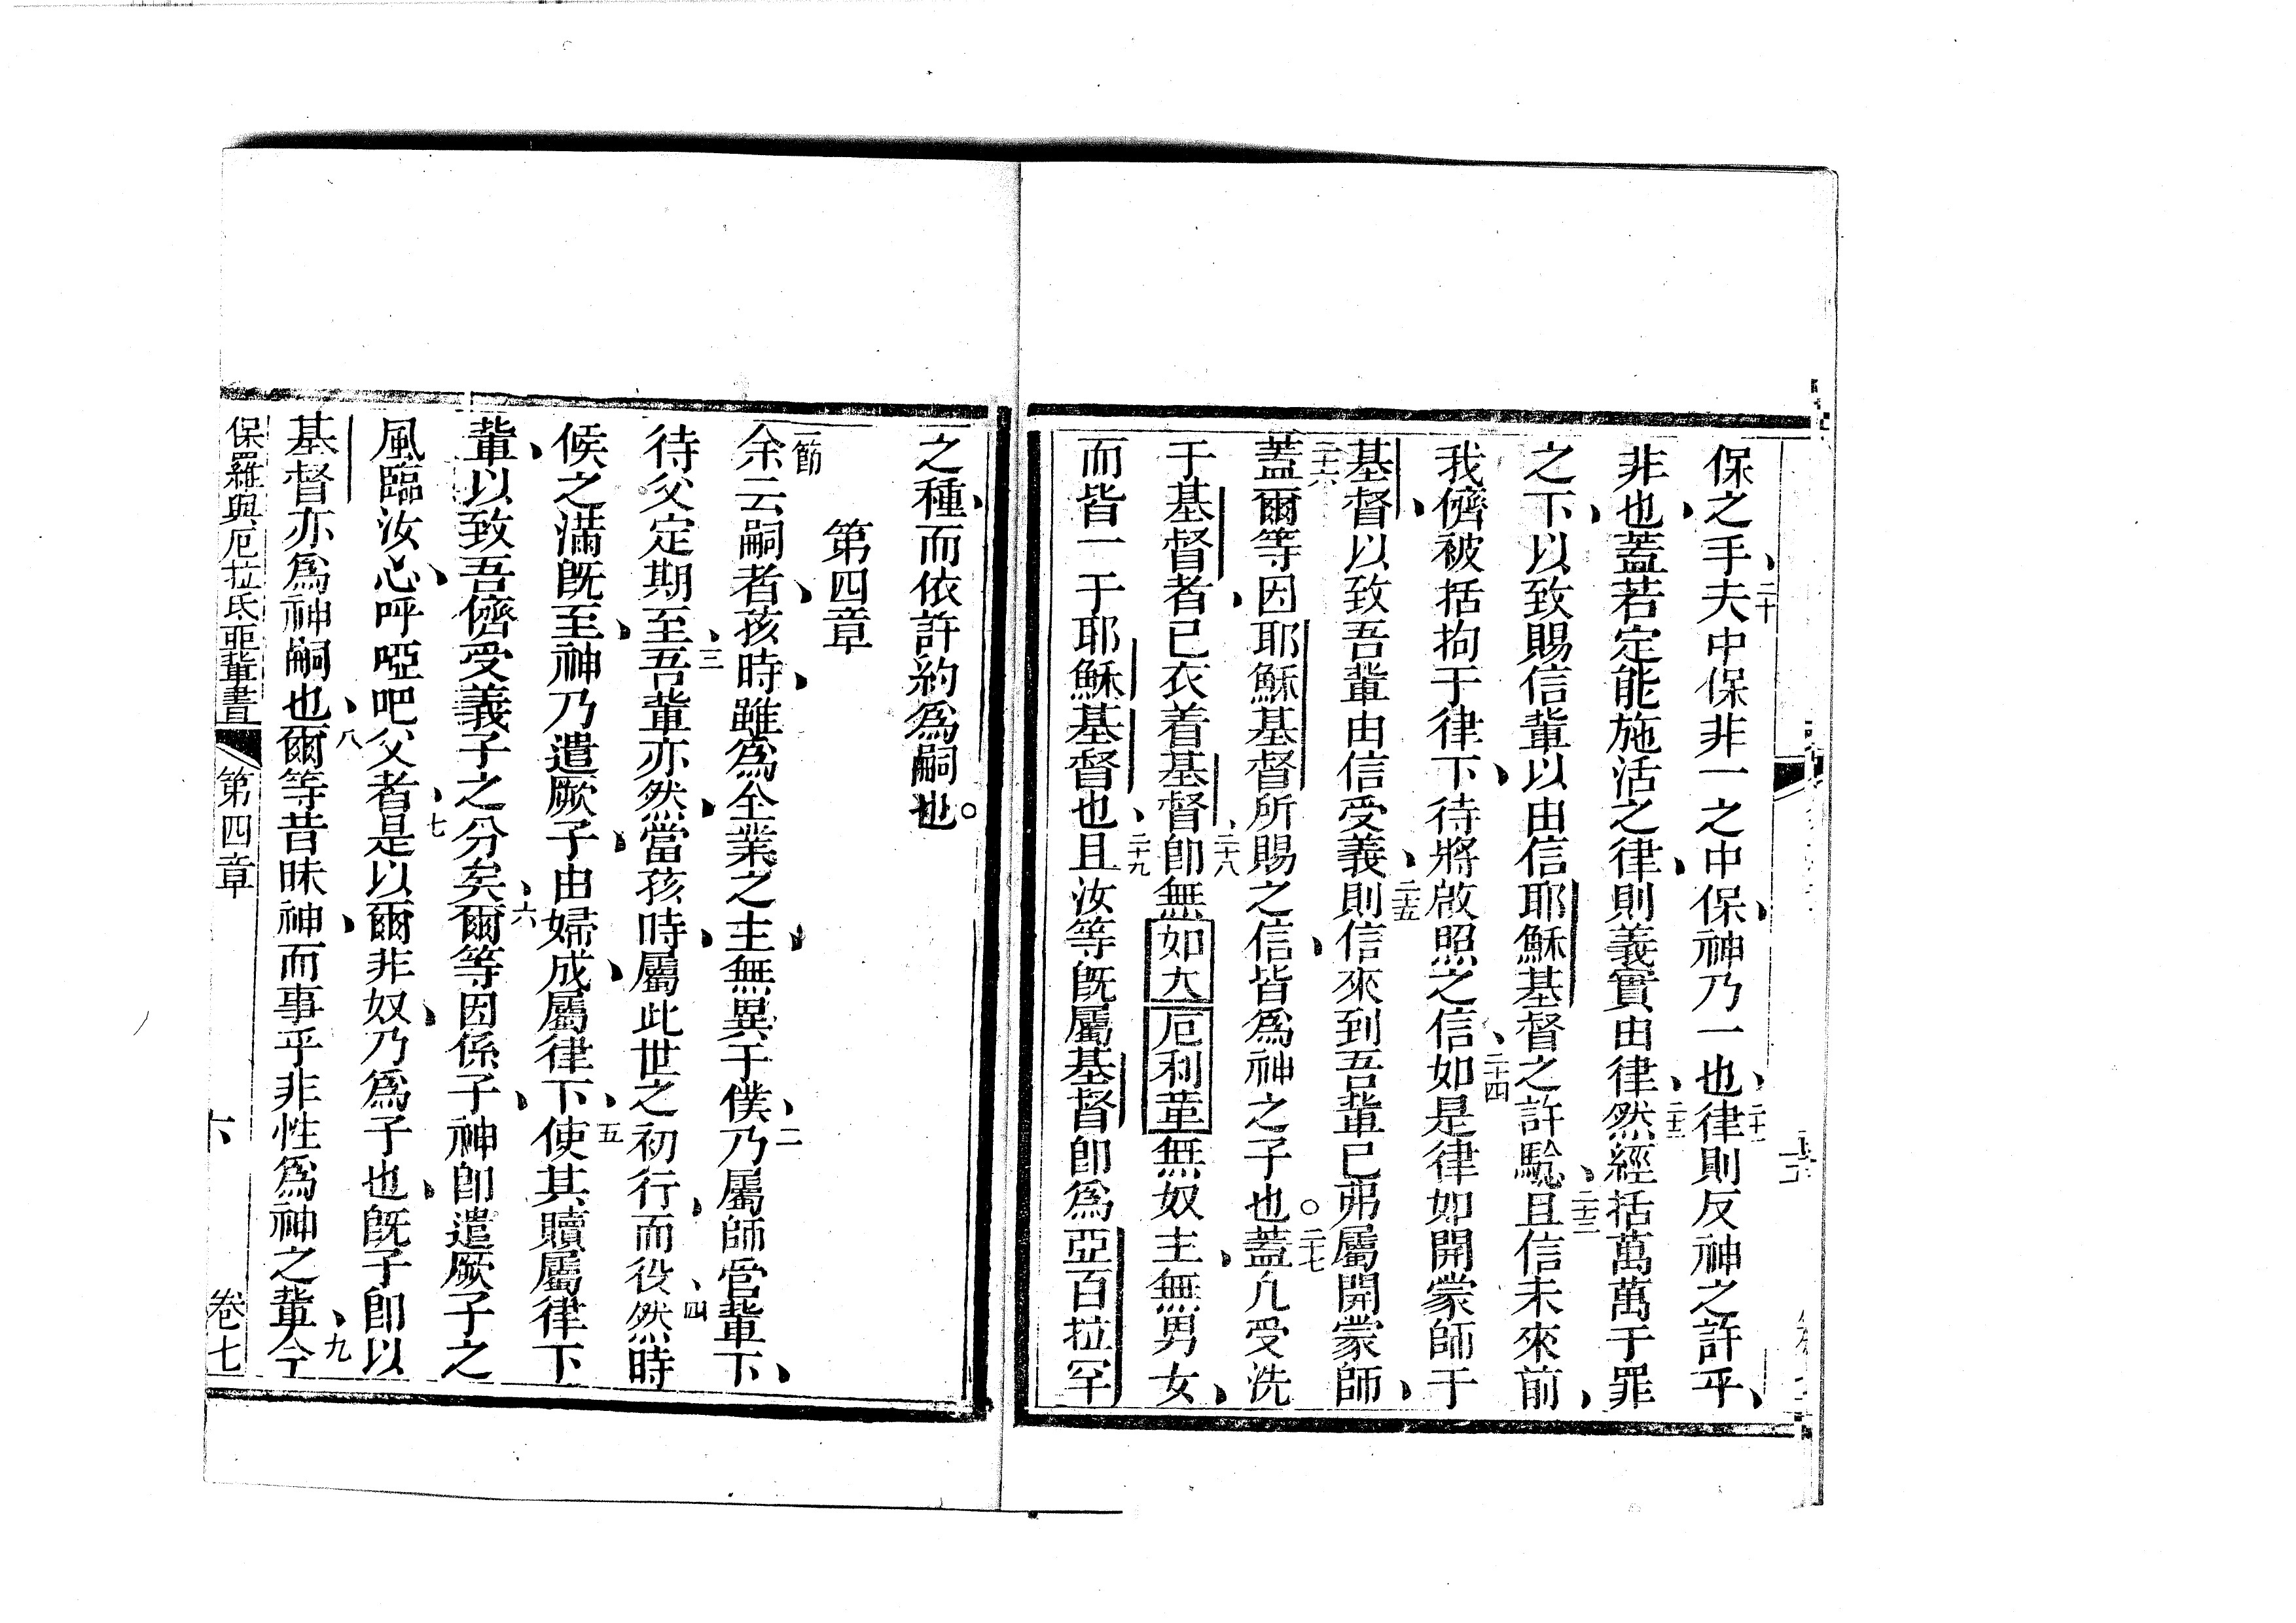 保之手夫、二十中保非一之中保、神乃一也、二十一律則反神之許乎、
非也、蓋若定能施活之律、則義實由律、二十二然經括萬萬于罪
之下、以致賜信輩以由信耶穌基督之許驗、二十三且信未來前、
我儕被括拘于律下、待將啟照之信、二十四如是律如開蒙師于
基督、以致吾輩由信受義、二十五則信來到吾輩已弗屬開蒙師、
二十六蓋爾等因耶穌基督所賜之信、皆為神之子也○二十七蓋凢受洗
于基督者、已衣着基督、二十八卽無如大厄利革無奴主、無男女、
而皆一于耶穌基督也、二十九且汝等旣屬基督卽為亞百拉罕
之種、而依許約為嗣也○
第四章
一節余云嗣者、孩時、雖為全業之主、無異于僕、二乃屬師官輩下、
待父定期至、三吾輩亦然、當孩時、屬此世之初行、而役、四然時
候之滿旣至、神乃遣厥子、由婦成、屬律下、五使其贖屬律下
輩、以致吾儕受義子之分矣、六爾等因係子、神卽遣厥子之
風臨汝心、呼啞吧父者、七是以爾非奴、乃為子也、旣子卽以
基督亦為神嗣也、八爾等昔昧神、而事乎非性為神之輩、九今
保羅與厄拉氐亞輩書 第四章 卷七